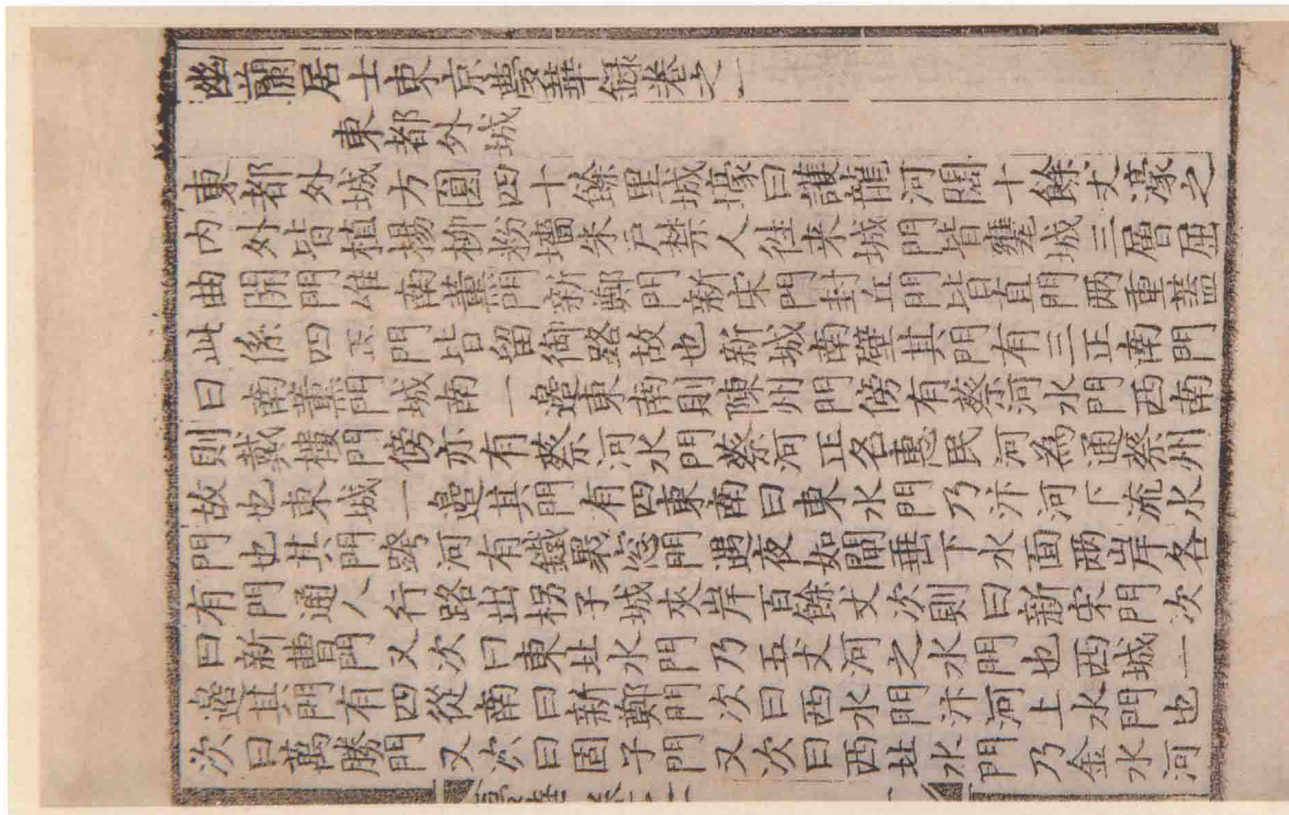 幽蘭居士東京夢華録卷之一
東都外城
東都外城方圎四十餘里城壕曰護龍河闊十餘丈濠之
内外皆植楊柳粉墻朱戶禁人往来城門皆甕城三層屈
曲開門唯南薫門新鄭門新宋門封丘門皆直門兩重蓋
此係四正門皆留御路故也新城南壁其門有三正南門
曰南薫門城南一邉東南則陳州門傍有蔡河水門西南
則戴樓門傍亦有蔡河水門蔡河正名惠民河為通蔡州
故也東城一邉其門有四東南曰東水門乃汴河下流水
門也其門跨河有鐵裹窓門遇夜如閘垂下水面兩岸各
有門通人行路出拐子城夾岸百餘丈次則曰新宋門次
曰新曹門又次曰東北水門乃五丈河之水門也西城一
邉其門有四從南曰新鄭門次曰西水門汴河上水門也
次曰萬勝門又次曰固子門又次曰西北水門乃金水河